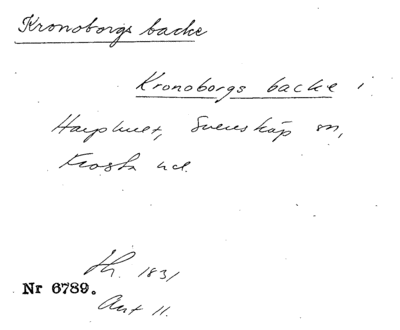 Kronoborgs backe
Kronoborgs backe i
Harphult, Svensköp sn,
Frosta hd.
Lh. 1831
Nr 6789.
Akt 11.